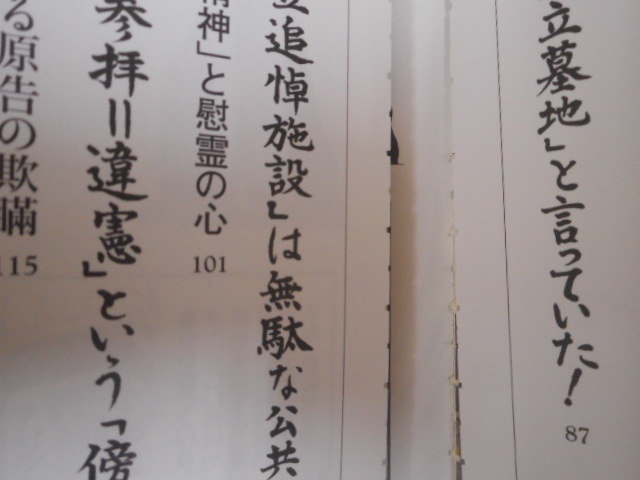 立墓地」と言っていた！
87
追悼施設」は無駄な公共
神」と慰霊の心
101
参拝＝違憲」という「傍
る原告の欺瞞
115